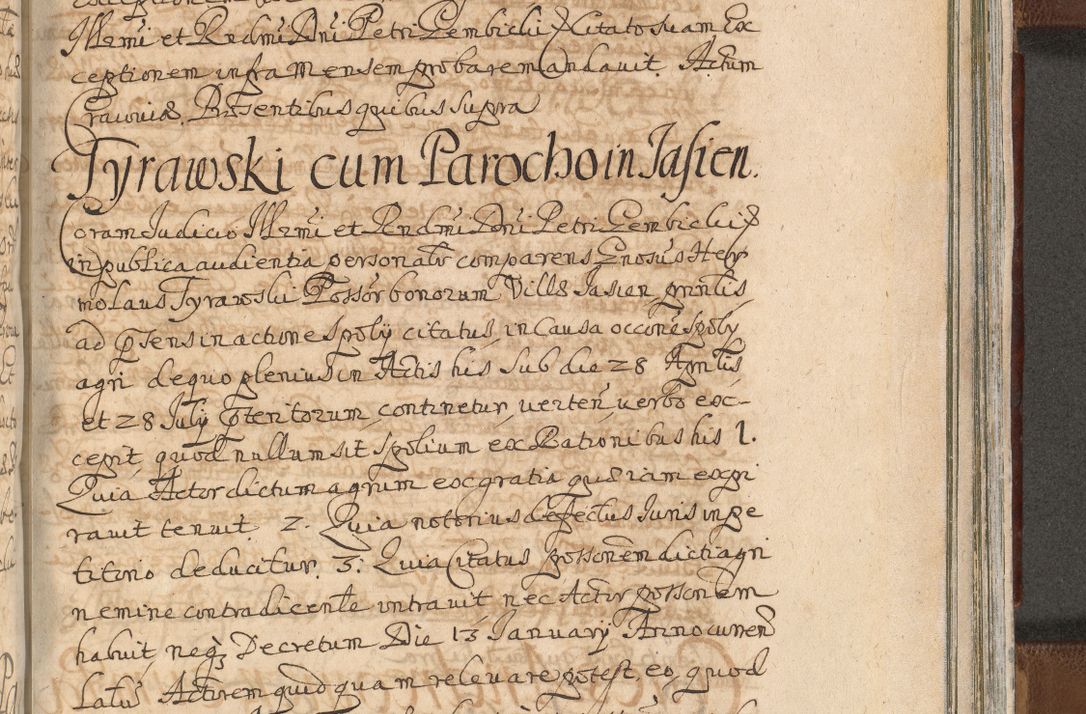 Illrmi et Rndmi Dni Petri Gembicki &c. Citato suam Ex
ceptionem infra mensem probare mandavit. Actum
Cracoviæ. Præsentibus quibus supra
Tyrawski cum Parocho in Jasien.
Coram Judicio Illrmi et Rndmi Dni Petri Gembicki &c.
in publica audientia personalr comparens Gnosus Her
molaus Tyrawski Possor bonorum Villæ Jasien, prntis,
ad Præsens in actione Spolij citatus, in Causa occone Spoly
agri de quo plenius in Actis his sub die 28 Aprilis,
et 28 July præteritorum, continetur, verten, verbo ex-
cepit, quod nullum sit Spolium ex Rationibus his 1.
Quia Actor dictum agrum ex gratia quæ iam expi
ravit tenuit. 2. Quia notorius defectus Juris in pe
titorio deducitur. 3. Quia Citatus possonem dicti agri
nemine contradicente intravit, nec Actor possonem
habuit, neq3 Decretum Die 13 January Anno curren
latu Actorem quidquam relevare potest, eo, quod